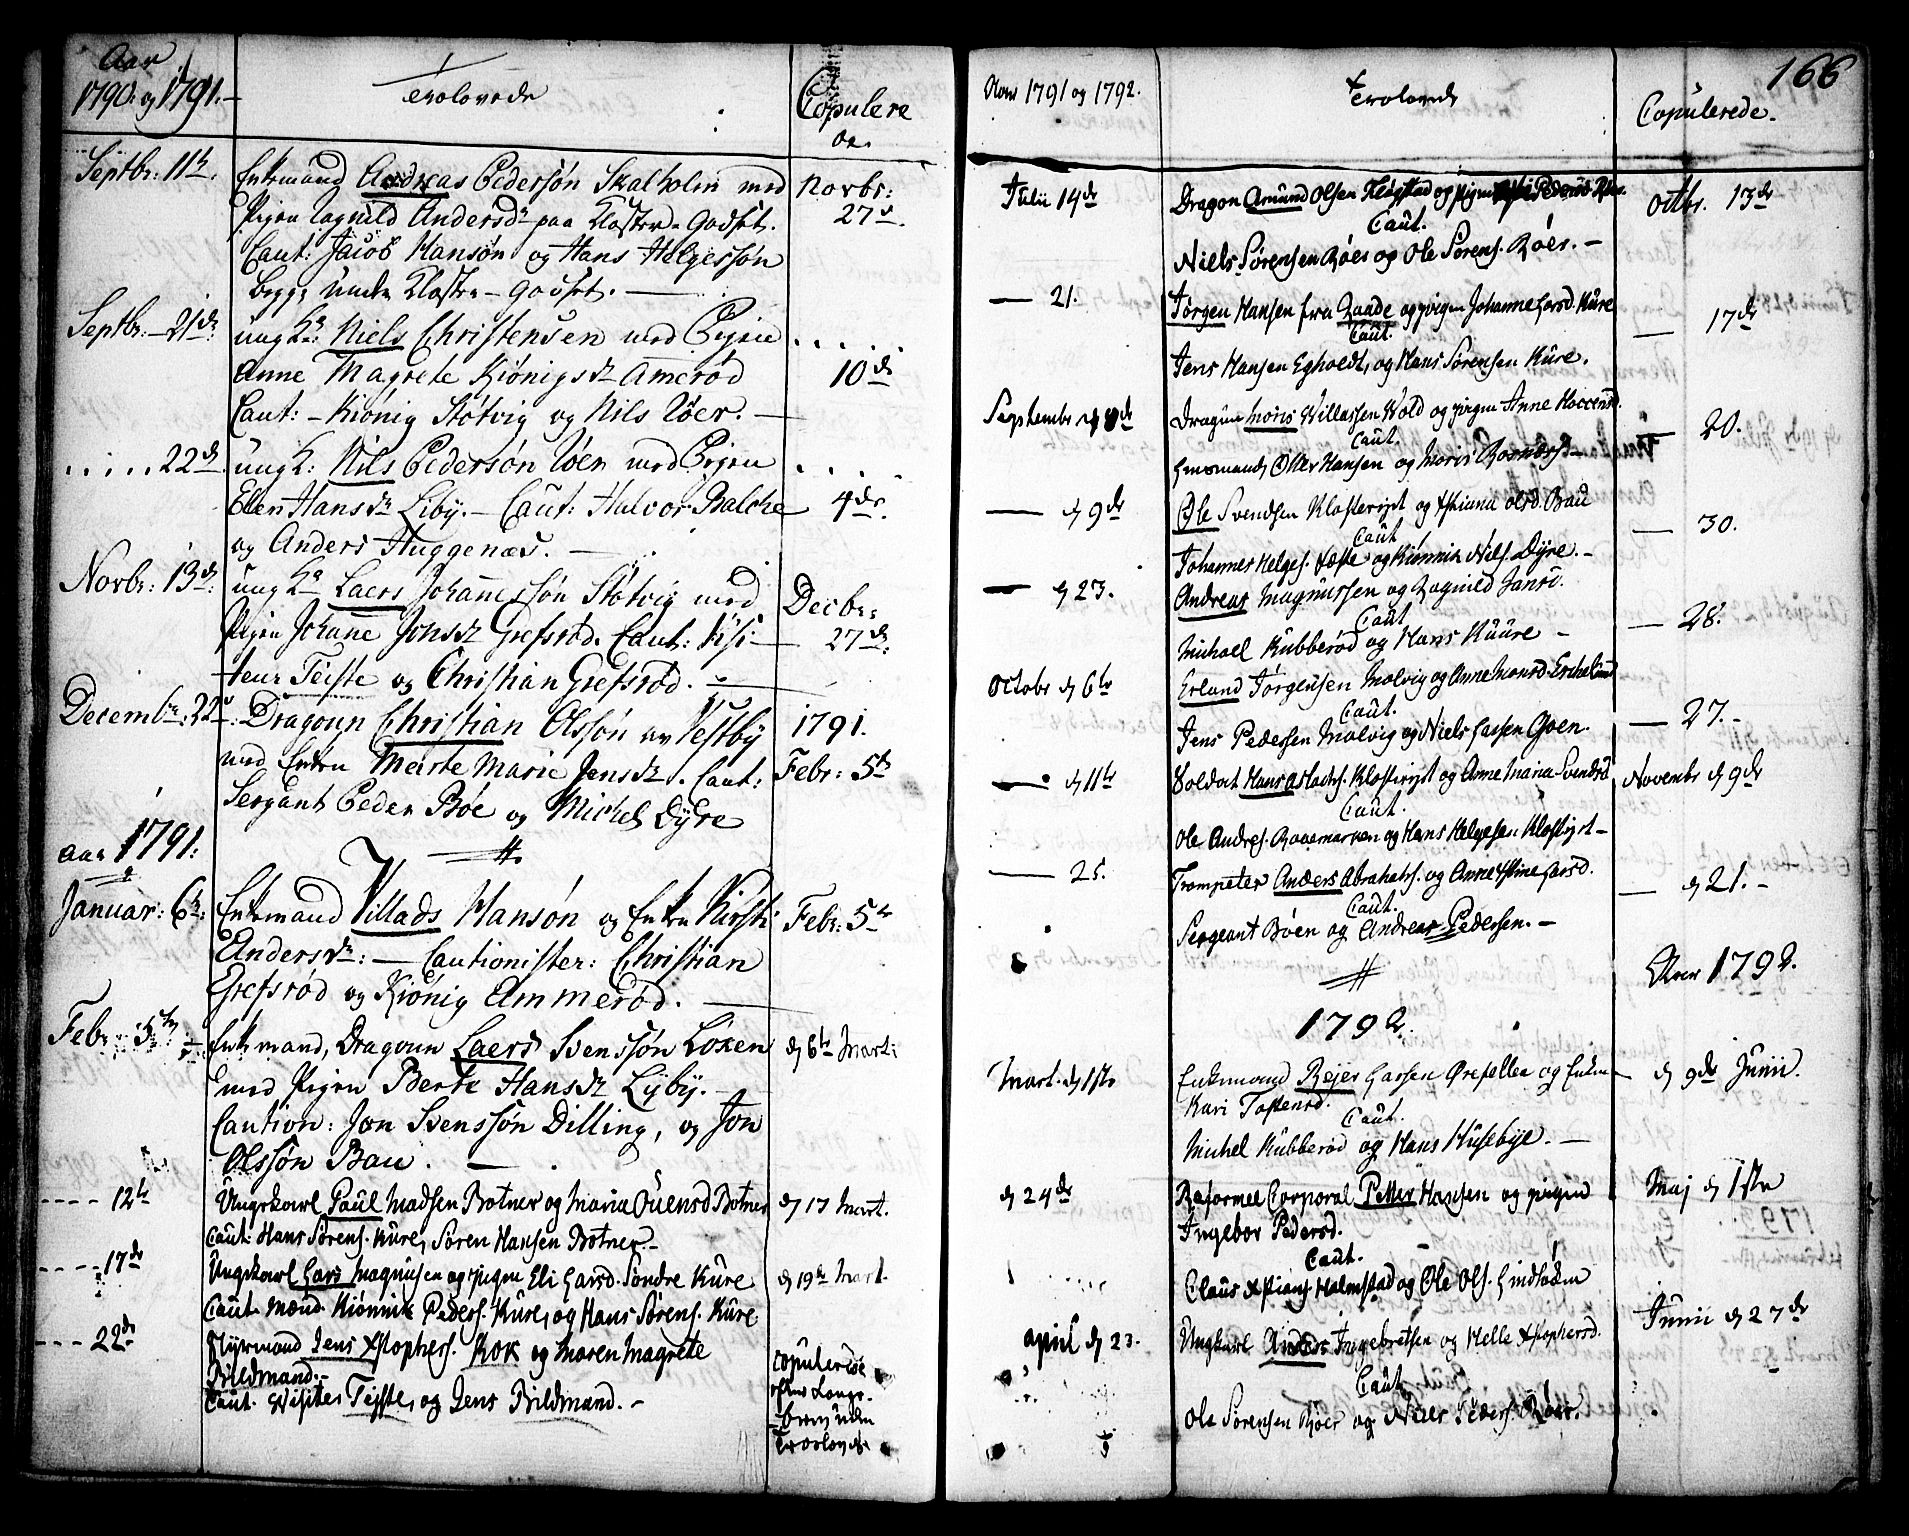 Aar
1790. og 1791.
Trolovede
Copulere
de.
Septbr: 11te.
Enkemand Andreas Pedersøn Skalholm med
Pigen Ragnild Andersdr paa Kloster-Godset.
Caut: Jacob Hansøn og Hans Helgessøn
begge under Kloster-Godset.
Novbr:
27de.
Septbr: 21de:
ung K: Niels Christensen med Pigen
Anne Magrete Kiönigsdr Amerød
Caut: Kiönig Støtvig og Nils Röer.
10de
22de
ung K: Nils Pedersøn Röer med Pigen
Ellen Hansdr Liby. Caut: Halvor Balche
og Anders Huggenæs.
4de.
Novbr: 13de:
ung K: Laers Johannessøn Støtvig med
Pigen Johanne Jonsdr Grefsrød. Caut: Chri-
sten Teiste og Christian Grefsrød.
Decbr:
27de.
Decembr: 22de:
Dragoun Christian Olssøn av Vestby
med Enken Merte Marie Jensdr. Caut:
Sergant Peder Böe og Michel Dyre
1791.
Febr: 5te
aar 1791:
Januar: 6te:
Enkemand Villads Hansøn og Enken Kirsti
Andersdr: Cautionister: Christian
Grefsrød og Kiönig Ammerød.
Febr: 5te
Febr: 5te
Enkemand, Dragoun Laers Svenssøn Loxen
med Pigen Berte Hansdr Lyby.
Caution: Jon Svenssøn Dilling, og Jon
Olssøn Bau.
d 6te Marti
12te
Ungekarl Paul Madsen Botner og Maria Ouensd Botner
Caut: Hans Sörens. Kure, Sören Hansen Botner
d 17 Mart.
17de
Ungekarl Lars Magnusen og pigen Eli Larsd. Söndre Kure
Caut. Mænd Kiönnik Peders. Kure, og Hans Sörens. Kure
d 19de Mart.
22de
Jens Xstophers. Kok og Maren Magrete
Bildmand.
Caut. Teiste, og Jens Bildmand.
Copulerede
uden
Trolovede
166
Aar 1791 og 1792.
Trolovede
Copulerede.
Julii 14de
Dragon Amund Olsen og pigen
Caut.
Niels Sörensen Röer og Ole Sörens. Röer.
Octbr. 13de
21.
Jörgen Hansen fra Raade og pigen Johanne Larsd. Kure
Caut.
Jens Hansen Egholdt, og Hans Sörensen Kure.
17de
Septembr
Dragun Moris Willassen Wold og pigen Anne
Caut.
Hansen og Moris
20.
d 9de
Ole Svendsen Klosteriet og Xstiana Olsd. Bau
Caut
Johannes Helges. Tæste og Kiönnik Niels. Dyre.
30.
d 23.
Andreas Magnussen og Ragnild Jansd.
Caut
Michael Kubberød og Hans Kuure
28.
Octobr d 6te
Erland Jörgensen Molvig og Anne Monsd.
Caut.
Jens Pedersen Molvig og Niels Lassen Goen.
27.
d 11te
Soldat Hans Aslachs. Klosteriet og Anne Maria Svendsd
Caut.
Ole Andres. Raaemarken og Hans Helgesen Klosteriet
Novembr d 9de
25.
Trompeter Anders Abrahams. og Anne Xstine Larsd.
Caut.
Sergeant Böen og Andreas Pedersen.
d 21.
1792.
Aar 1792.
Mart. d 1ste
Enkemand Rejer Lassen Ørepellen og Enken
Kari Tostensd.
Caut.
Michel Kubberød og Hans Husebye.
d 9de Junii.
d 24de
Reformeret Corporal Petter Hansen og pigen
Ingebor Pedersd.
Caut.
Claus Xstians. Halmstad og Ole Ols.
Maj d 1ste
April d 23.
Ungkarl Anders Ingebretsen og Helle Xstophersd.
Caut.
Ole Sörensen Röer og Niels Peders. Röer.
Junii d 27de